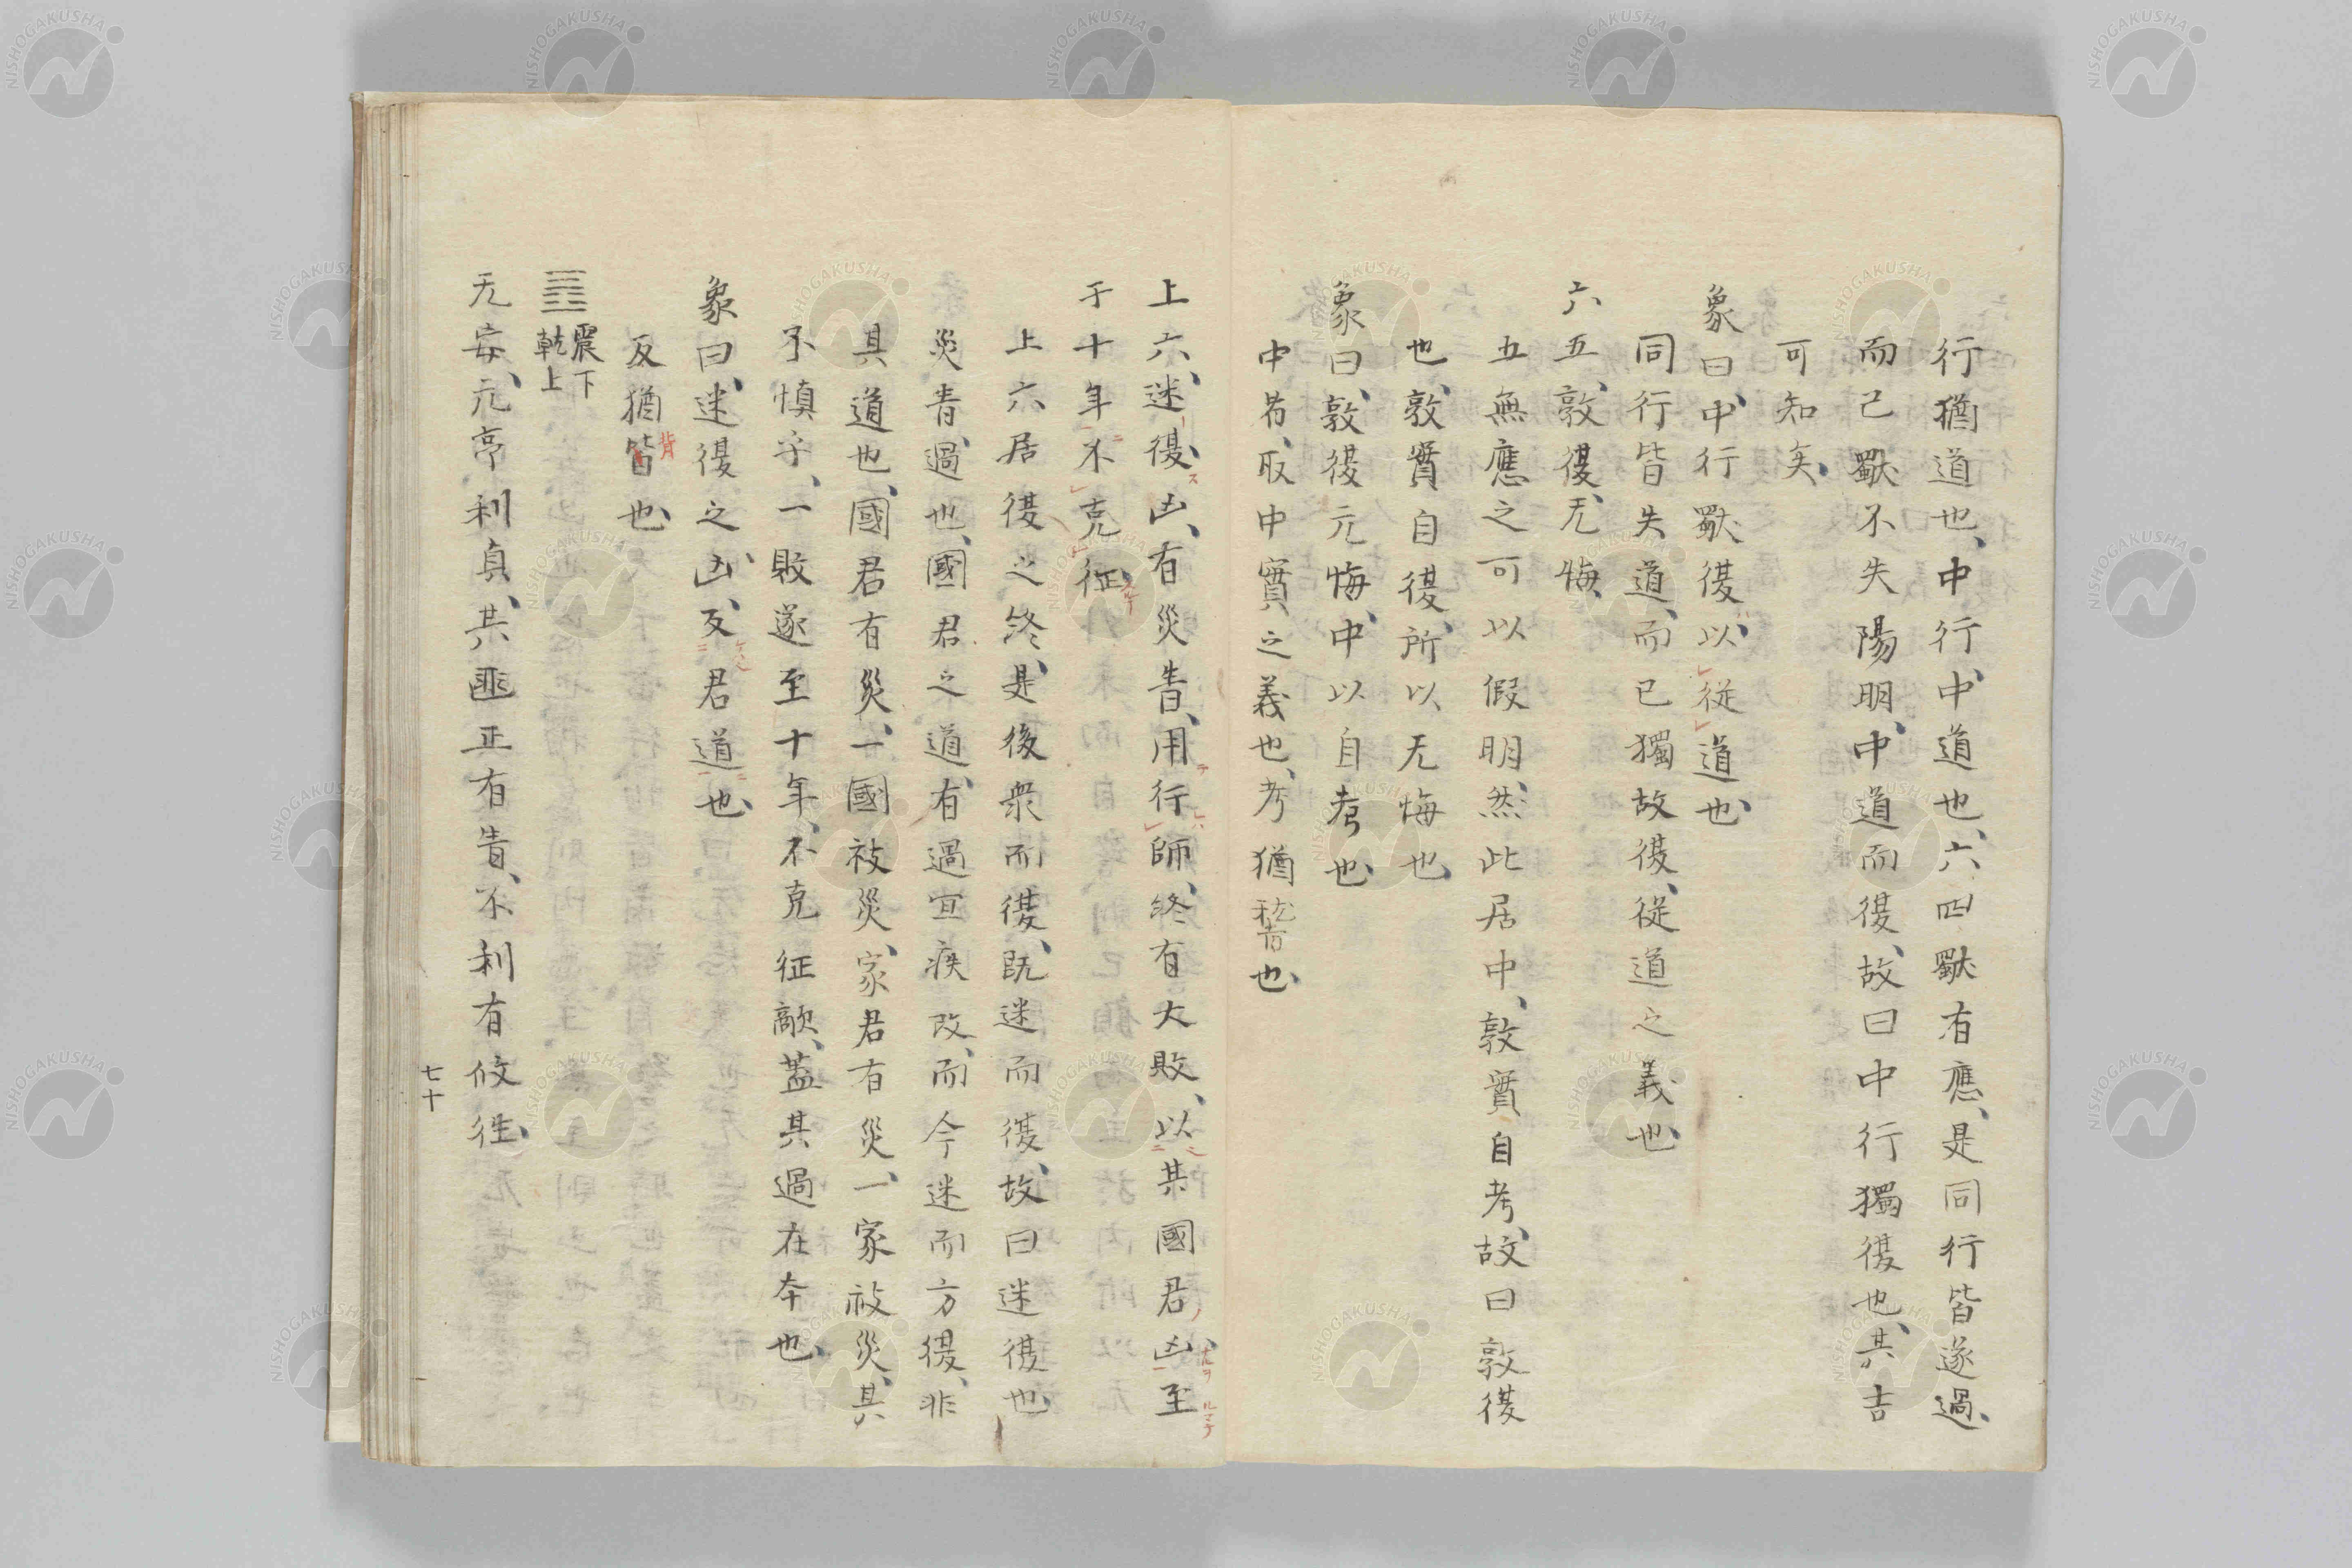 行猶道也、中行、中道也、六四獸有應、是同行皆遂過、
而己獸不失陽明、中道而復、故曰中行獨復也、其吉
可知矣、
象曰、中行獸復、以從道也、
同行皆失道、而已獨故復、從道之義也、
六五、敦復、无悔、
五無應之可以假明、然此居中、敦實自考、故曰敦復
也、敦實自復、所以无悔也、
象曰、敦復元悔、中以自考也、
中者、取中實之義也、考猶稽也、
上六、迷復、凶、有災眚、用行師、終有大敗、以其國君凶、至
于十年不克征、
上六居復之終、是後衆而復、既迷而復、故曰迷復也、
災眚、過也、國君之道、有過宜疾改、而今迷而方復、非
其道也、國君有災、一國被災、家君有災、一家被災、其
不慎乎、一敗遂至十年、不克征敵、蓋其過在本也、
象曰、迷復之凶、反君道也、
反猶皆也、
背
䷘ 震下乾上
无妄、元亨利貞、其匪正有眚、不利有攸往、
七十
NISHOGAKUSHA